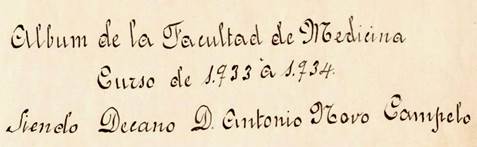 Album de la Facultad de Medicina
Curso de 1.933 à 1.934.
Siendo Decano D. Antonio Novo Campelo